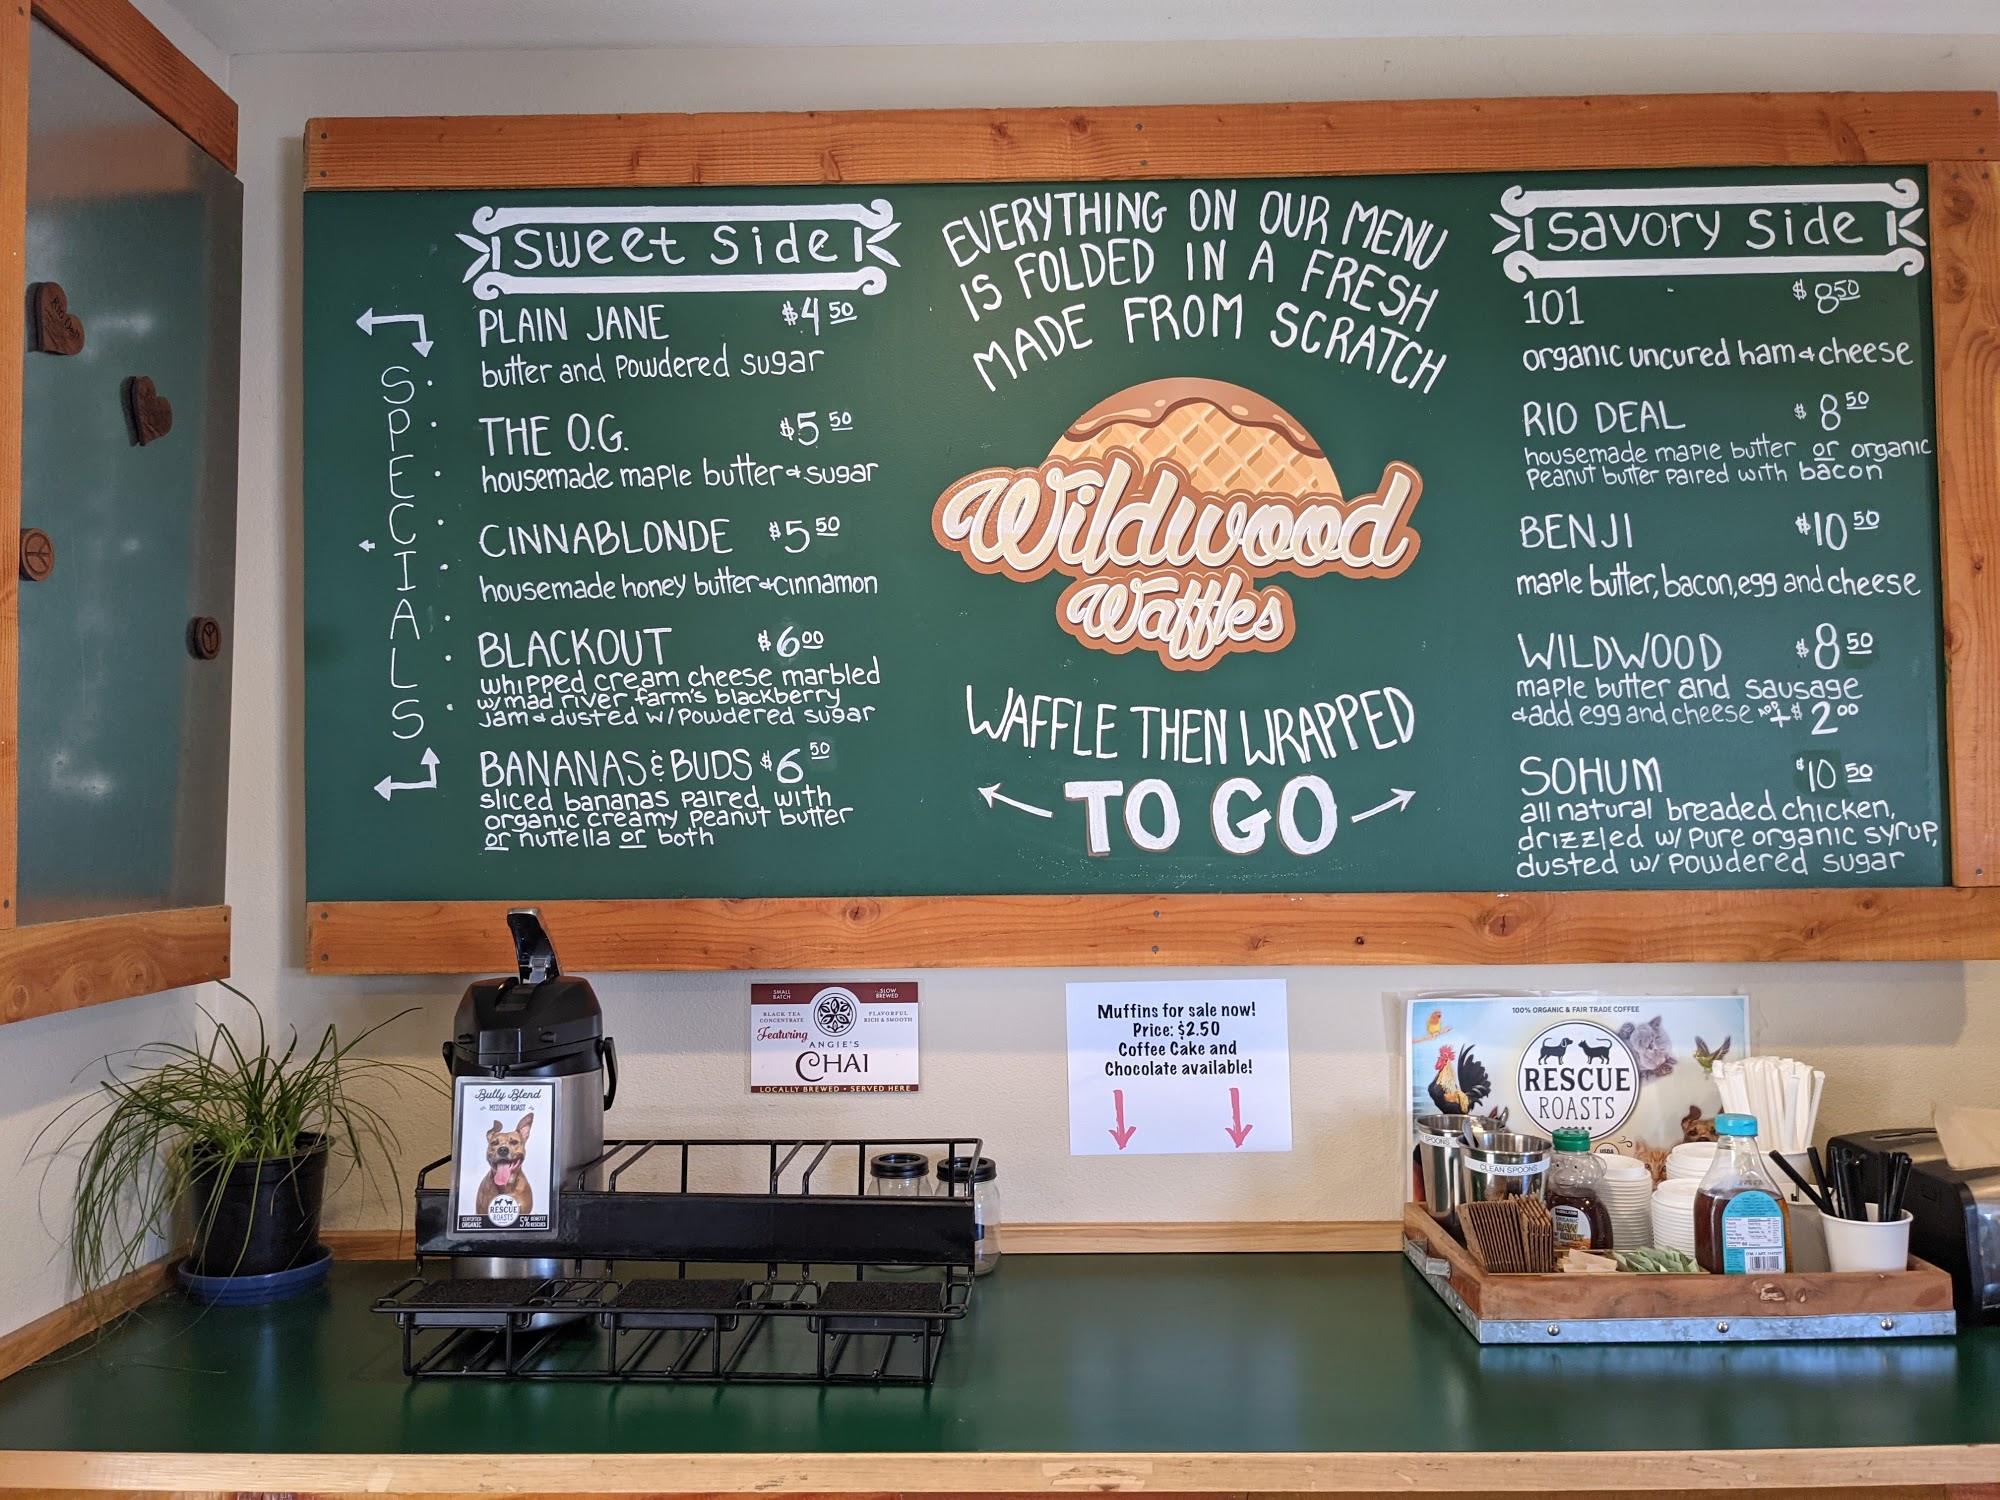 Sweet Side
PLAIN JANE $4 50
butter and Powdered sugar
THE O.G. $5 50
housemade maple butter & sugar
CINNABLONDE $5 50
housemade honey butter & cinnamon
BLACKOUT $6 00
whipped cream cheese marbled
w/ mad river farm's blackberry
Jam & dusted w/ Powdered sugar
BANANAS & BUDS $6 50
sliced bananas paired with
organic creamy peanut butter
or nuttella or both
SPECIALS
EVERYTHING ON OUR MENU
IS FOLDED IN A FRESH
MADE FROM SCRATCH
Wildwood
Waffles
WAFFLE THEN WRAPPED
TO GO
Savory Side
101 $8 50
organic uncured ham & cheese
RIO DEAL $8 50
housemade maple butter or organic
Peanut butter paired with bacon
BENJI $10 50
maple butter, bacon, egg and cheese
WILDWOOD $8 50
maple butter and sausage
& add egg and cheese + $2 00
SOHUM $10 50
all natural breaded chicken,
drizzled w/ pure organic syrup,
dusted w/ Powdered sugar
SMALL BATCH
SLOW BREWED
BLACK TEA CONCENTRATE
FLAVORFUL RICH & SMOOTH
Featuring
ANGIE'S
CHAI
LOCALLY BREWED • SERVED HERE
Muffins for sale now!
Price: $2.50
Coffee Cake and
Chocolate available!
100% ORGANIC & FAIR TRADE COFFEE
RESCUE
ROASTS
Bully Blend
MEDIUM ROAST
RESCUE
ROASTS
CERTIFIED ORGANIC
5%
SPOONS
CLEAN SPOONS